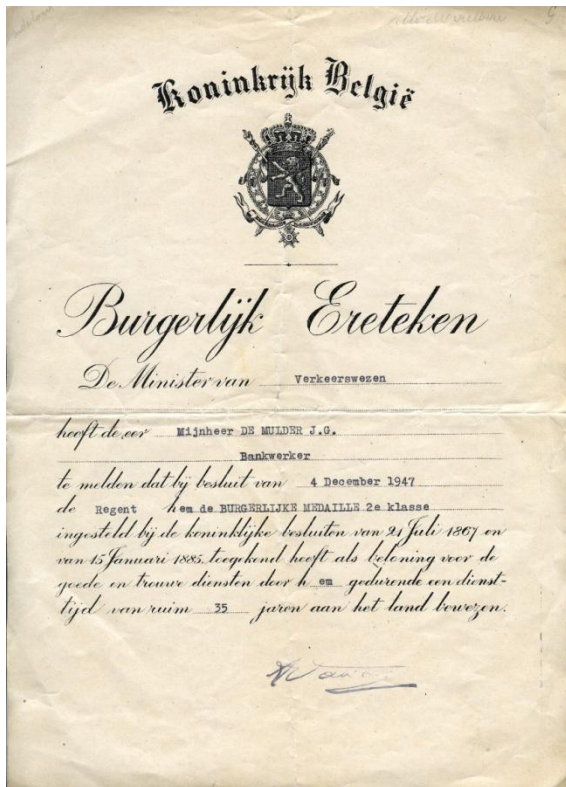 Koninkrijk België
Burgerlijk Ereteken
De Minister van Verkeerswezen
heeft de eer Mijnheer DE MULDER J.G.
Bankwerker
te melden dat bij besluit van 4 December 1947
de Regent hem de BURGERLIJKE MEDAILLE 2e klasse
ingesteld bij de koninklijke besluiten van 21 Juli 1867 en
van 15 Januari 1885, toegekend heeft als beloning voor de
goede en trouwe diensten door hem gedurende een dienst-
tijd van ruim 35 jaren aan het land bewezen.